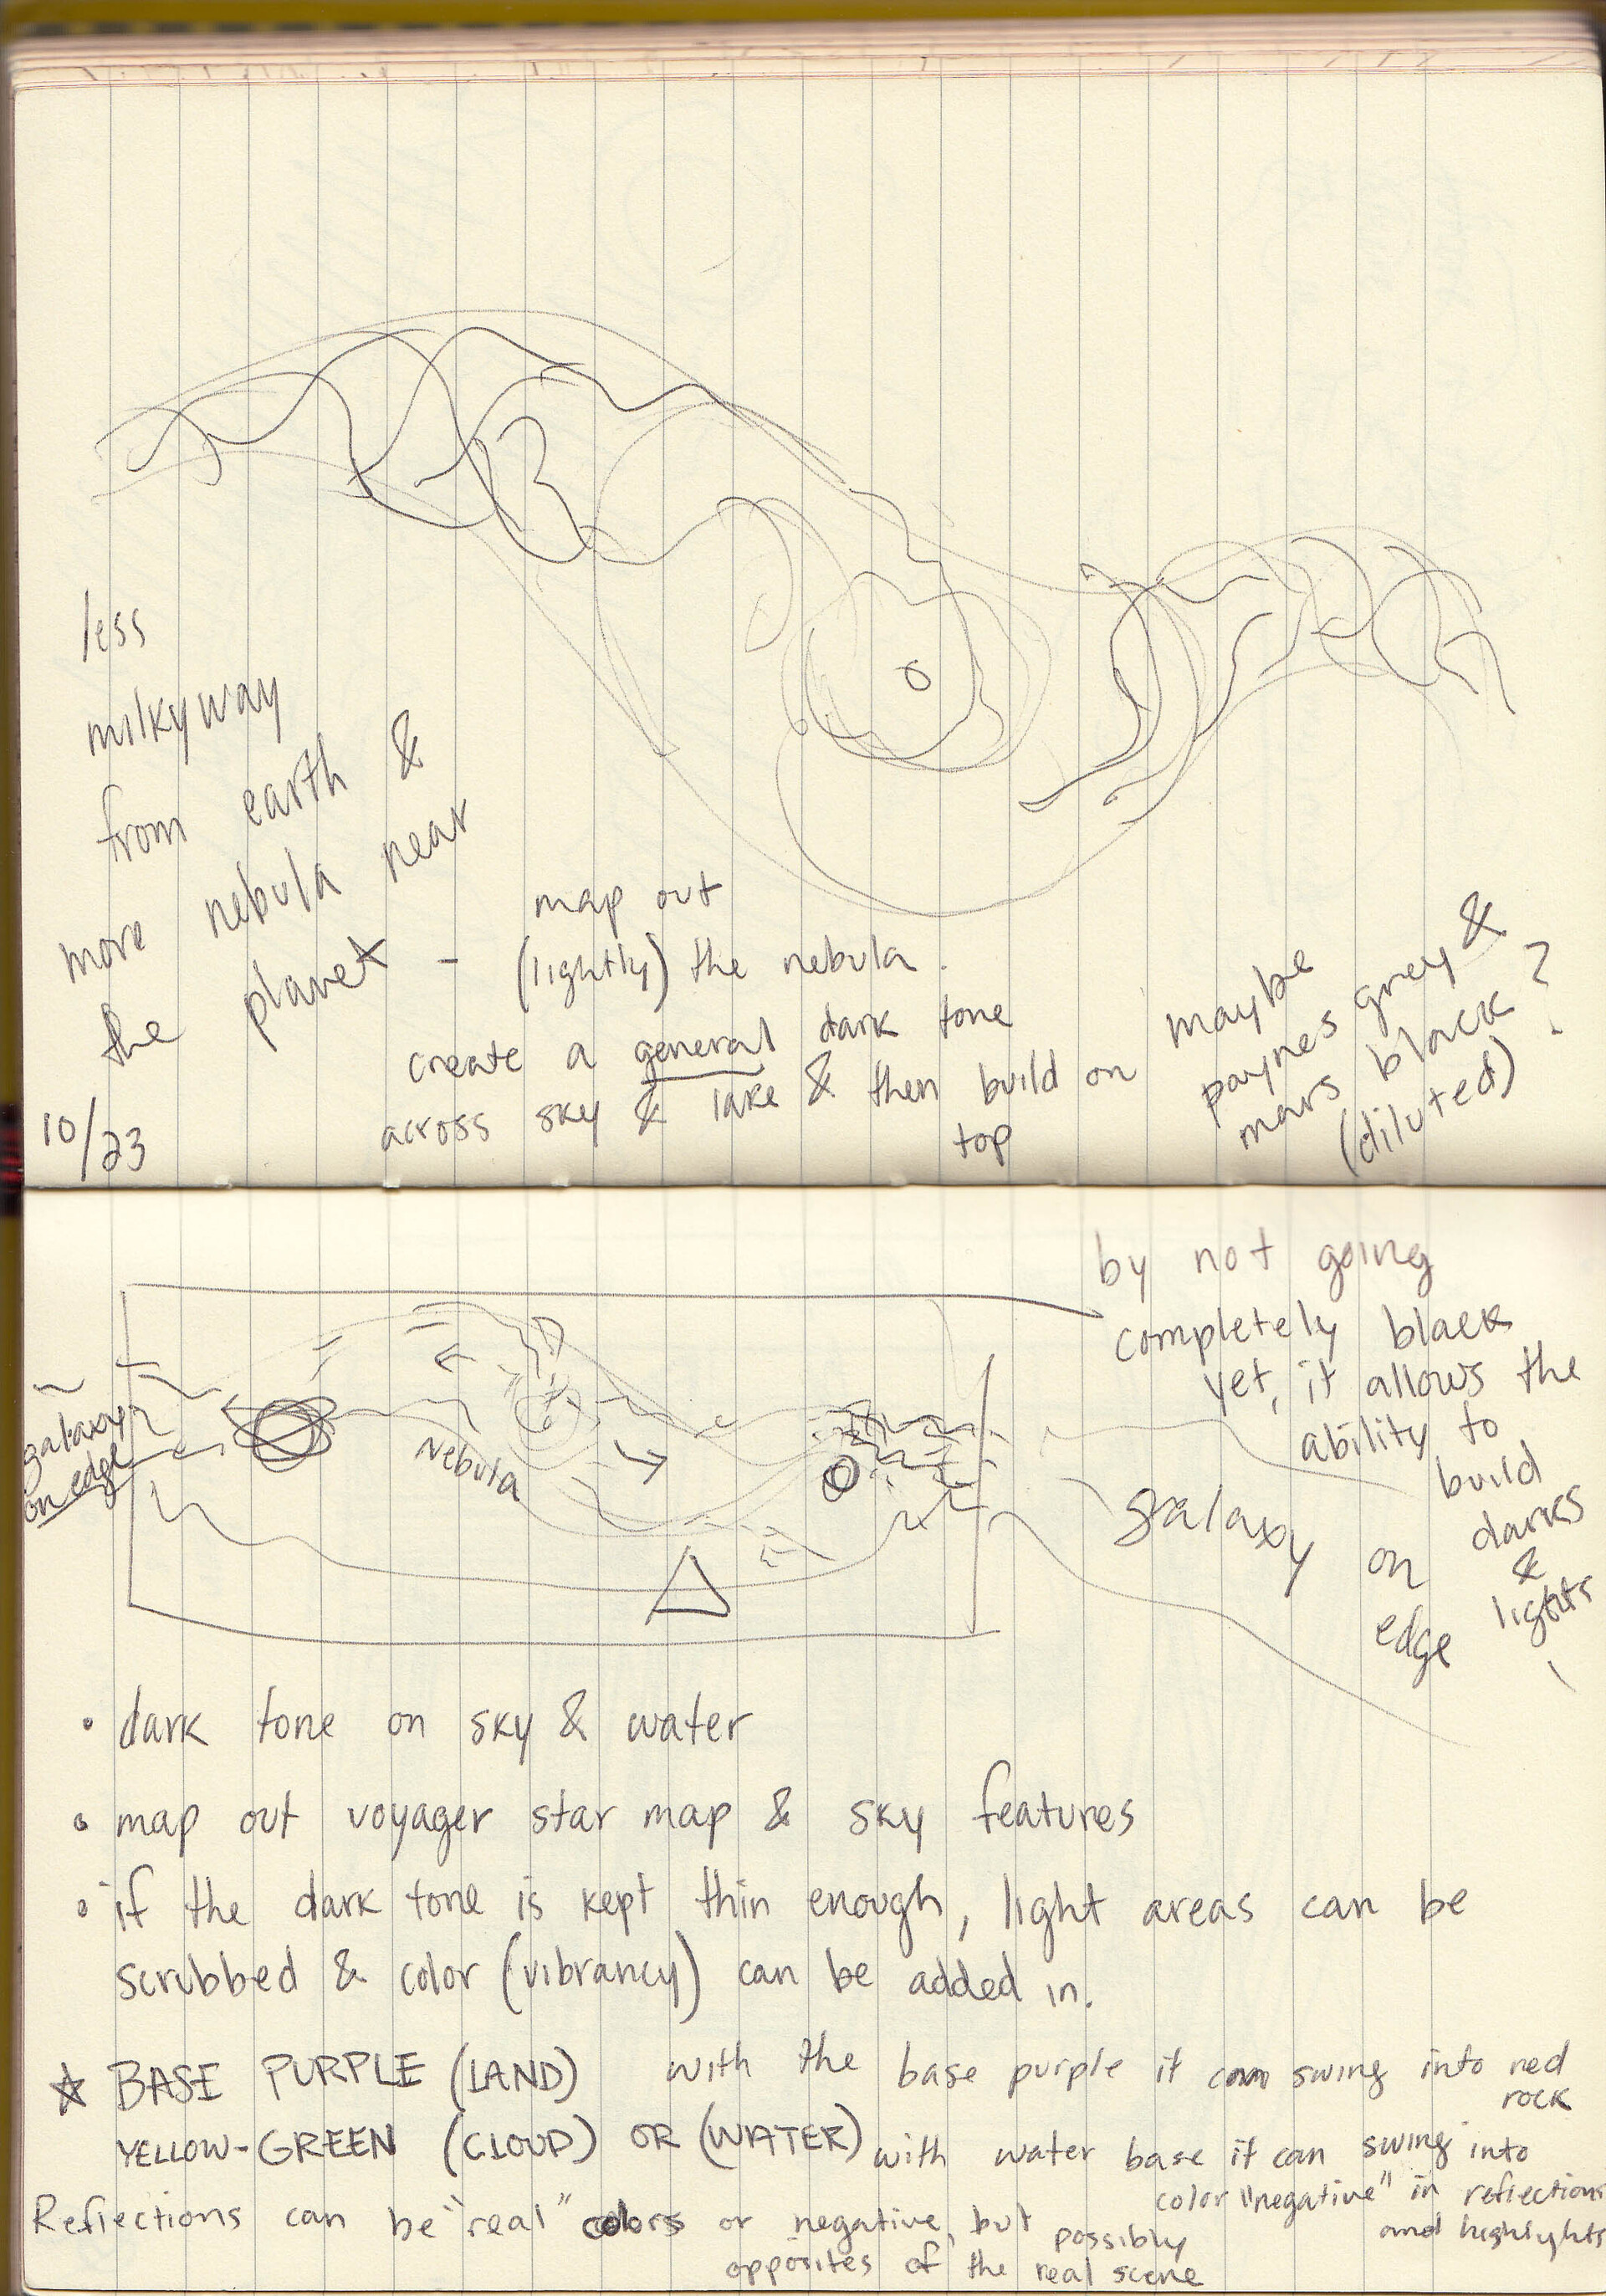 less
milkyway
from earth &
more nebula near
the planet -
map out
(lightly) the nebula.
create a general dark tone
across sky & lake & then build on
top
maybe
paynes grey &
mars black?
(diluted)
10/23
by not going
completely black
yet, it allows the
ability to
build
darks
&
lights
galaxy
on edge
Nebula
galaxy
on
edge
• dark tone on sky & water
• map out voyager star map & sky features
• if the dark tone is kept thin enough, light areas can be
scrubbed & color (vibrancy) can be added in.
☆ BASE PURPLE (LAND) with the base purple it can swing into red
rock
YELLOW-GREEN (CLOUD) OR (WATER) with water base it can swing into
color "negative" in reflections
and highlights
Reflections can be "real" colors or negative, but possibly
opposites of the real scene